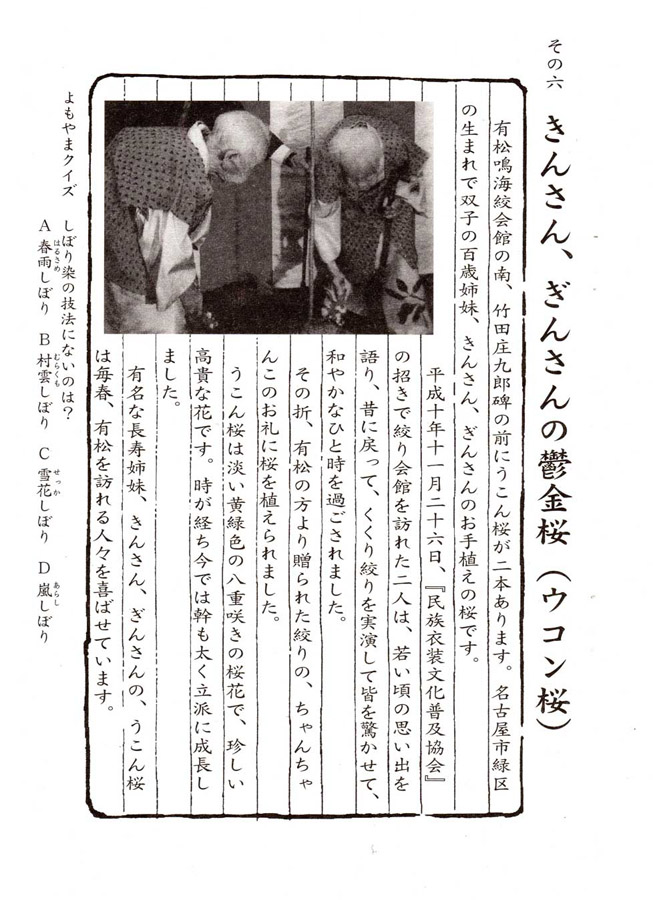 その六
きんさん、ぎんさんの鬱金桜（ウコン桜）
有松鳴海絞会館の南、竹田庄九郎碑の前にうこん桜が二本あります。名古屋市緑区
の生まれで双子の百歳姉妹、きんさん、ぎんさんのお手植えの桜です。
平成十年十一月二十六日、『民族衣装文化普及協会』
の招きで絞り会館を訪れた二人は、若い頃の思い出を
語り、昔に戻って、くくり絞りを実演して皆を驚かせて、
和やかなひと時を過ごされました。
その折、有松の方より贈られた絞りの、ちゃんちゃ
んこのお礼に桜を植えられました。
うこん桜は淡い黄緑色の八重咲きの桜花で、珍しい
高貴な花です。時が経ち今では幹も太く立派に成長し
ました。
有名な長寿姉妹、きんさん、ぎんさんの、うこん桜
は毎春、有松を訪れる人々を喜ばせています。
よもやまクイズ しぼり染の技法にないのは？
A 春雨しぼり B 村雲しぼり C 雪花しぼり D 嵐しぼり
はるさめ むらくも せっか あらし